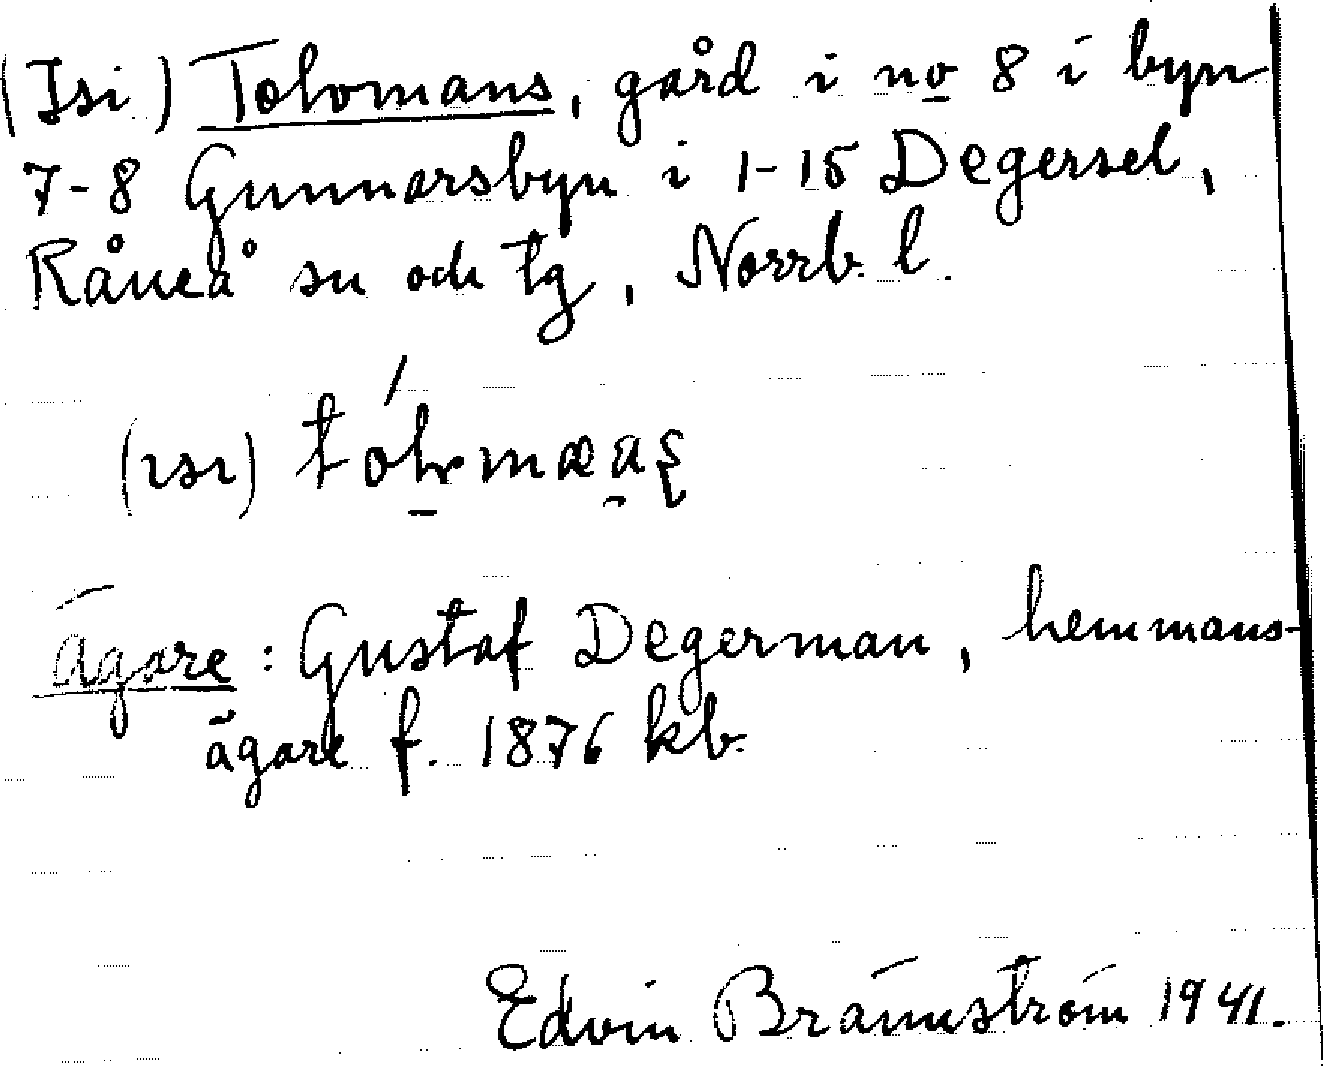 (Isi) Tolvmans, gård i no 8 i byn
7-8 Gunnarsbyn i 1-15 Degersel,
Råneå sn och tg, Norrb. l.
(ısı)
Ägare: Gustaf Degerman, hemmans-
ägare f. 1876 kb.
Edvin Brännström 1941.